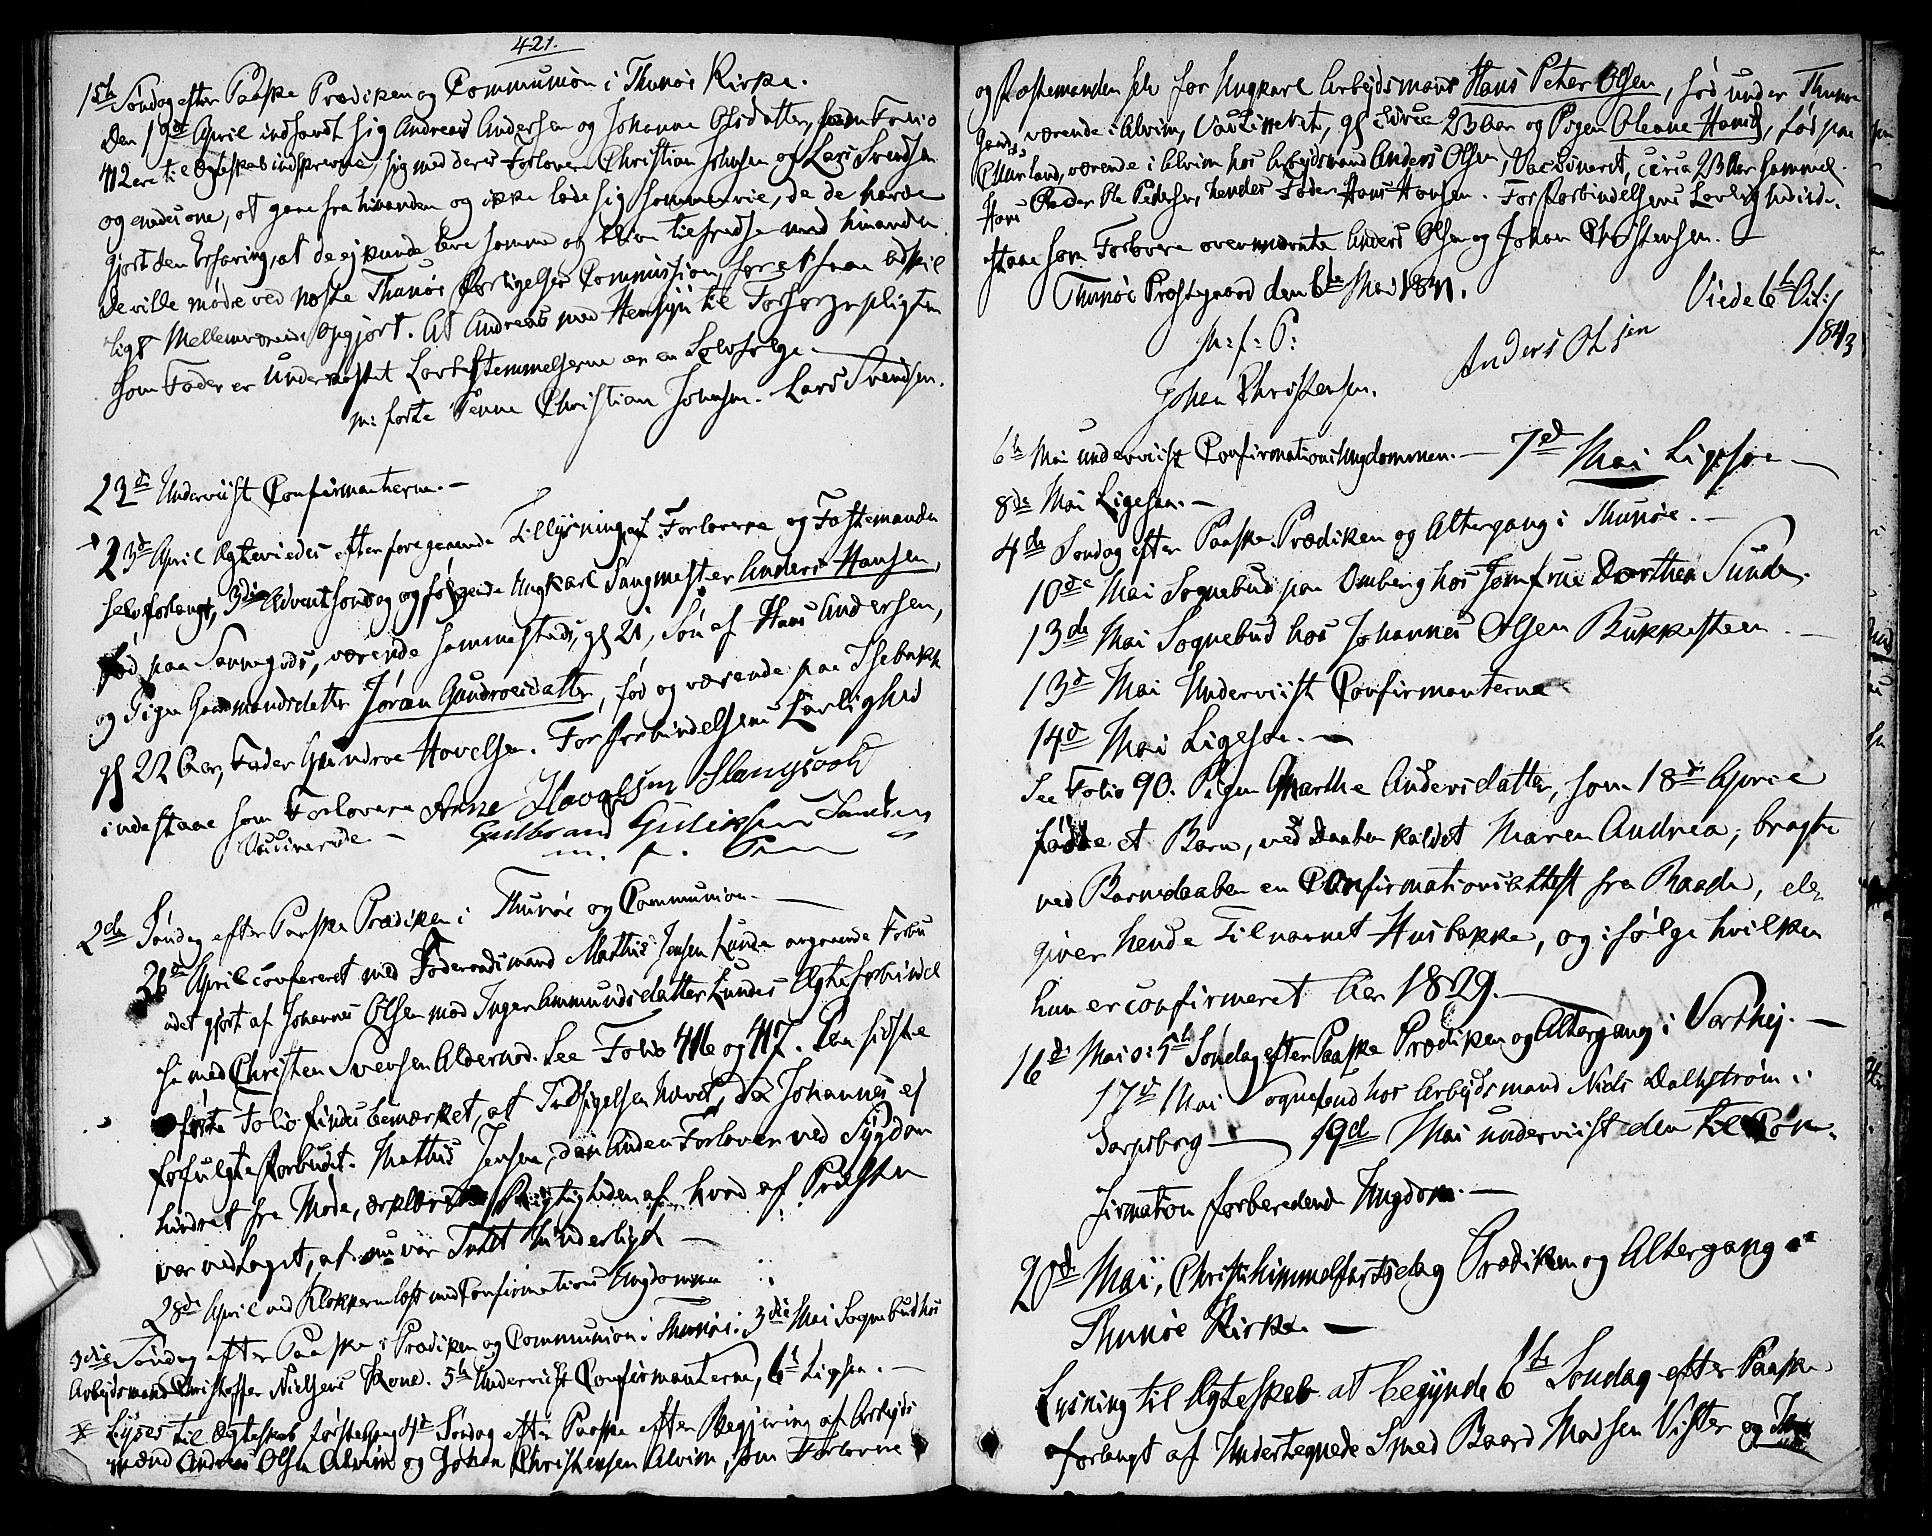 421.
1ste Søndag efter Paaske Prædiken og Communion i Thunøe Kirke.
Den 19de April indfandt sig Andreas Andersen og Johanne Olsdatter, Folio
412 ere til Ægteskab indskrevne, sig med deres Forlovere Christian Johnsen og Lars Svendsen
og endes om, at gaae fra hinanden og ikke lade sig sammenvie, da de havde
gjort den Erfaring, at de ej kunde leve sammen og blive tilfredse med hinanden.
De ville møde ved næste Thunøe Forligelses Commission, for at faae adskil
ligt Mellemværende opgjort. At Andreas med Hensyn til Forsørgepligten
som Fader er underkastet Lovbestemmelserne er en Selvfølge.
m: førte Penne Christian Johnsen. Lars Svendsen.
22de Underviist Confirmanterne. -
23de April Ægteviedes efter foregaaende Tillysning af Forloverne og Fæstemanden
selv forlangt, 3die Advent Søndag og følgende Ungkarl Saugmester Anders Hansen,
fød paa Sannesund, værende sammesteds, gl 21, Søn af Hans Andersen,
og Pigen Gaardmandsdatter Jøran Gundroesdatter, fød og værende paa Isebakke
gl 22 Aar, Fader Gundroe Hovelsen. For Forbindelsens Lovlighed
indestaae som Forlovere Arne Havelsen Slangsvold
Vaccinerede - Gulbrand Guliksen Sanden
m. f. Pen
2den Søndag efter Paaske Prædiken i Thunøe og Communion. -
26de April confereret med Føderaadsmand Mathis Jensen Lunde angaaende Forbu
det gjort af Johannes Olsen mod Inger Ammundsdatter Lundes Ægteforbindel
se med Christen Svensen Alderod. See Folio 416 og 417. Paa sidste
førte Folio findes bemærket, at Indsigelsen hævet, da Johannes ej
forfulgte Forbudet. Mathis Jensen, den anden Forlover ved Sygdom
hindret fra Møde, erklærede Rigtigheden af hvad af Præsten
var vedtaget, at nu var Intet hinderligt -
28de April ved Klokkeren læst med Confirmations Ungdommen
3die Søndag efter Paaske Prædiken og Communion i Thunøe. 3die Mai Sognebud hos
Arbejdsmand Christoffer Nielsens Kone. 5te Underviist Confirmanterne, 6te Ligesaa. -
Lyses til Ægteskab første Gang 4de Søndag efter Paaske efter Begjering af Arbejds
mænd Andreas Olsen Alvim og Johan Christensen Alvim, som Forlovere
og Fæstemanden selv for Ungkarl Arbejdsmand Hans Peter Olsen, fød under Thunøe
værende i Alvim, Vaccineret, gl circa 23 Aar og Pigen Oleane Hansd, fød paa
værende i Alvim hos Arbejdsmand Anders Olsen, Vaccineret, circa 23 Aar gammel.
Hans Fader Ole Pedersen, hendes Fader Hans Hansen. For Forbindelsens Lovlighed inde-
staae som Forlovere ovennævnte Anders Olsen og Johan Christensen. -
Thunøe Præstegaard den 6te Mai 1841.
Viede 6te Oct:/1843
m: f: P:
Anders Olsen
Johan Christensen.
6te Mai underviist Confirmations Ungdommen. - 7de Mai Ligesaa -
8de Mai Ligesaa. -
4de Søndag efter Paaske Prædiken og Altergang i Thunøe. -
10de Mai Sognebud paa Omberg hos Jomfrue Dorthea Sunde.
13de Mai Sognebud hos Johannes Olsen Bukkesteen. -
13de Mai Underviist Confirmanterne
14de Mai Ligesaa. -
See Folio 90. Pigen Marthe Andersdatter, som 18de April
fødte et Barn, ved Daaben kaldet Maren Andrea, bragte
ved Barnedaaben en Confirmationsattest fra Raade, der
giver hende Tilnavnet Husbakke, og ifølge hvilken
hun er confirmeret Aar 1829. -
16de Mai o: 5te Søndag efter Paaske Prædiken og Altergang i Varthej. -
17de Mai Sognebud hos Arbejdsmand Niels Dalhstrøm i
Sarpsborg - 19de Mai underviist den til Con-
firmation forberedende Ungdom. -
20de Mai, Christi himmelfartsdag Prædiken og Altergang i
Thunøe Kirke. -
Lysning til Ægteskab at begynde 6te Søndag efter Paaske
forlangt af Undertegnede Smed Baard Madsen Vister og